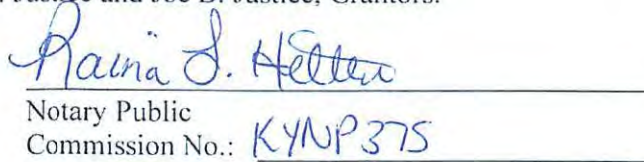 Justice and Joe B. Justice, Grantors.
Raina J. Helton
Notary Public
Commission No.: KYNP375